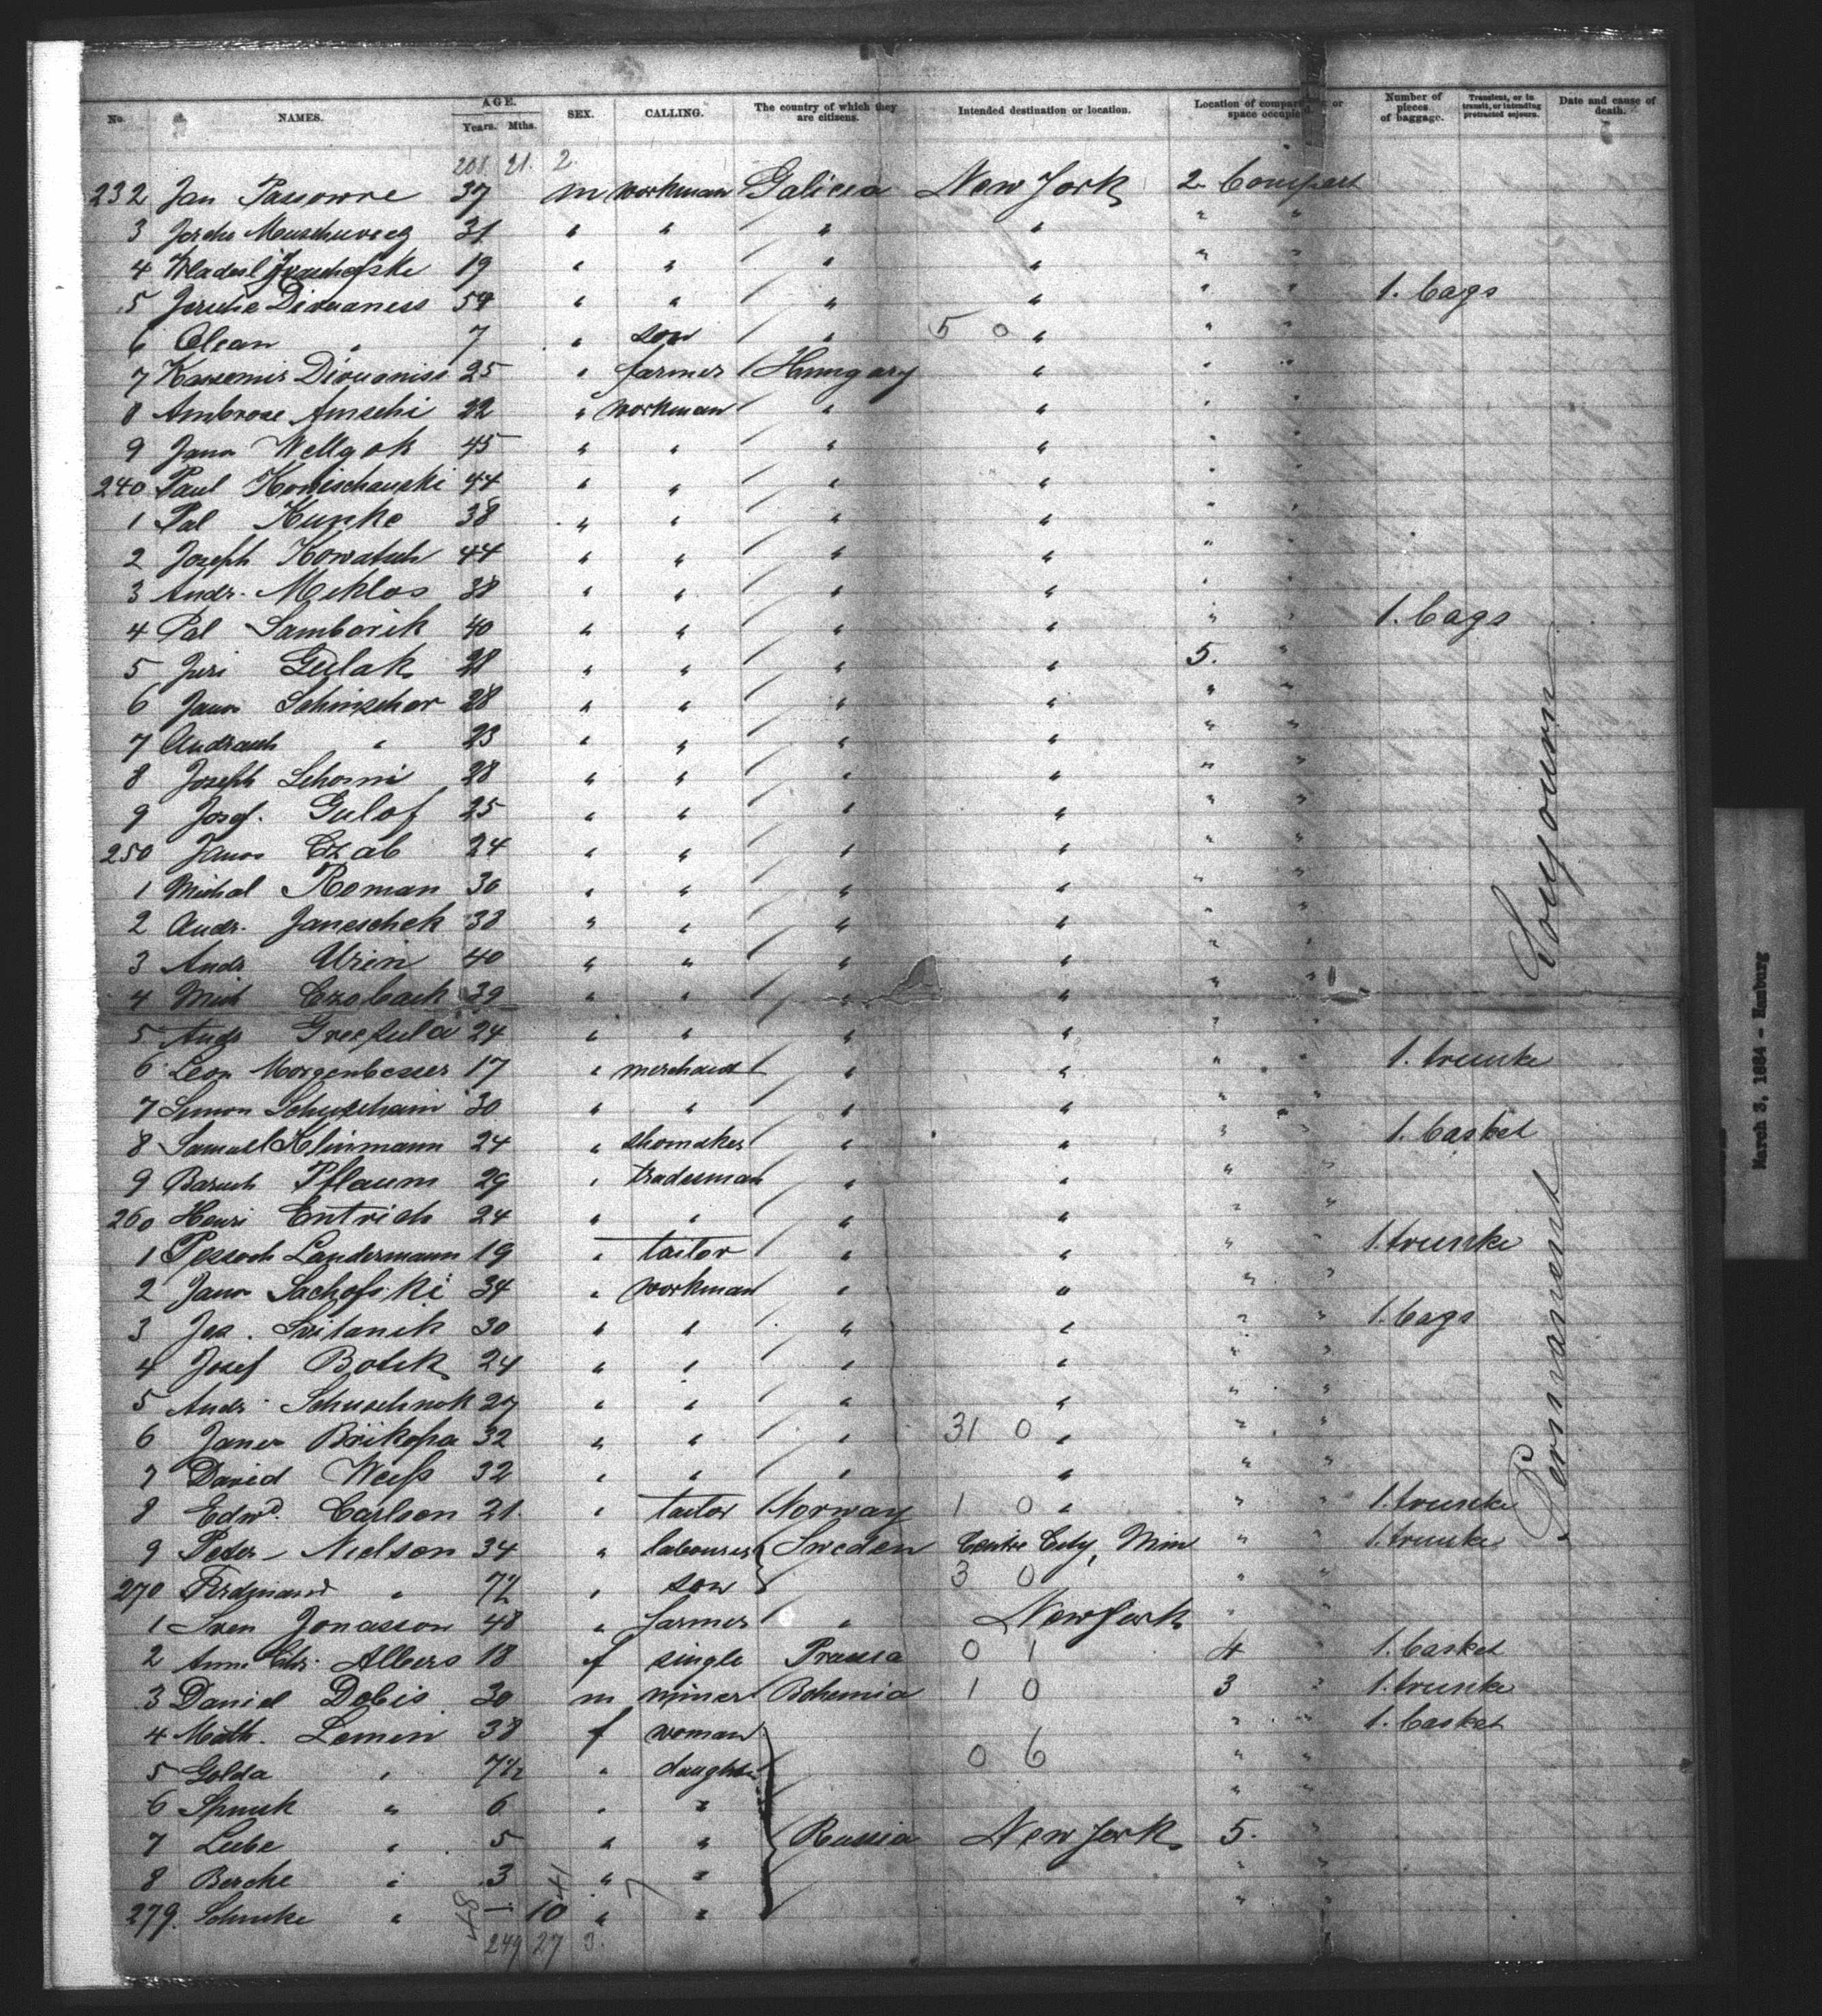 No. NAMES. AGE. Years. Mths. SEX. CALLING. The country of which they are citizens. Intended destination or location. Location of compartment or space occupied. Number of pieces of baggage. Transient, or in transit, or intending protracted sojourn. Date and cause of death.
208 21. 2.
232 Jan Passowre 37 m workman Galicia New York 2 Compart
3 31 " " " " " "
4 19 " " " " " "
5 54 " " " " " " 1. bags
6 Olean " 7 " son " 5 0 " " "
7 25 " farmer Hungary " " "
8 Ambrose 22 " workman " " " "
9 Janos Wellgok 45 " " " " " "
240 Paul 44 " " " " " "
1 Pal Kunke 38 " " " " " "
2 Joseph Kowatsch 44 " " " " " "
3 Andr. Miklos 38 " " " " " "
4 Pal Samborik 40 " " " " " " 1. bags
5 Juri Gulak 28 " " " " 5. "
6 Janos Schinscher 28 " " " " " "
7 Andrasch " 23 " " " " " "
8 Joseph 28 " " " " " "
9 Josef. Gulof 25 " " " " " "
250 Janos Czab 24 " " " " " "
1 Michal Roman 30 " " " " " "
2 Andr. Janeschek 38 " " " " " "
3 Andr Urin 40 " " " " " "
4 Mich Czoback 39 " " " " " "
5 Andr 24 " " " " " "
6 Leon Morgenbesser 17 " merchand " " " " 1. trunke
7 Simon 30 " " " " " "
8 Samuel Kleinmann 24 " shomaker " " " " 1. basket
9 Baruch Pflaum 29 " tradesman " " " "
260 Henri Entrich 24 " " " " " "
1 Pessach Landermann 19 " tailor " " " " 1. trunke
2 Janos Sachofski 34 " workman " " " "
3 Jos. Svitanik 30 " " " " " " 1. bags
4 Josef Botik 24 " " " " " "
5 Andr. Schuschnok 27 " " " " " "
6 Janos 32 " " " 31 0 " " "
7 David Weiss 32 " " " " " "
8 Edwd. Carlson 21. " tailor Norway 1 0 " " " 1. trunke
9 Peter Nielson 34 " labourer Sweden Centre City, Min " " 1. trunke
270 Ferdinand " 7½ " son 3 0 " "
1 Sven Jonasson 48 " farmer " New York " "
2 Anna Chr. Albers 18 f single Prussia 0 1 4 " 1. basket
3 Daniel Dobis 30 m miner Bohemia 1 0 3 " 1. trunke
4 Math. Lemin 38 f woman " " 1. basket
5 Golda " 7½ " daughter 0 6 " "
6 " 6 " " " "
7 Liebe " 5 " " Russia New York 5.
8 Bercke " 3 " " " "
279. " - 10 " " " "
48 41 7
249 27 3.
Soujourn
Permanent
March 3, 1884 - Hamburg